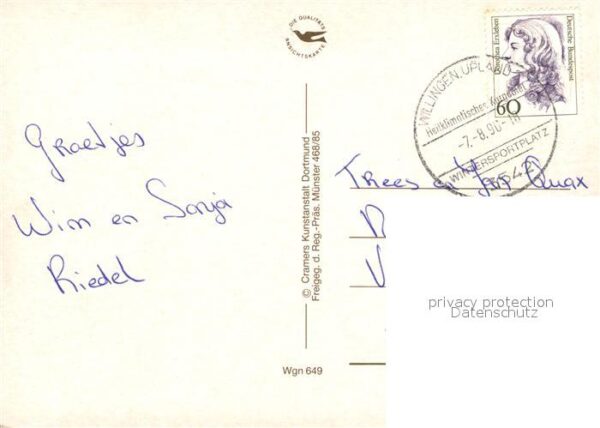 DIE QUALITÄTS
ANSICHTSKARTE
Dorothea Erxleben
Deutsche Bundespost
60
WILLINGEN, UPLAND
Heilklimatischer Kurort
-7.-8.90-
WINTERSPORTPLATZ
3542
Graetjes
Wim en Sonja
Riedel
© Cramers Kunstanstalt Dortmund
Freigeg. d. Reg.-Präs. Münster 468/85
Trees en Jos Quax
D
V
privacy protection
Datenschutz
Wgn 649